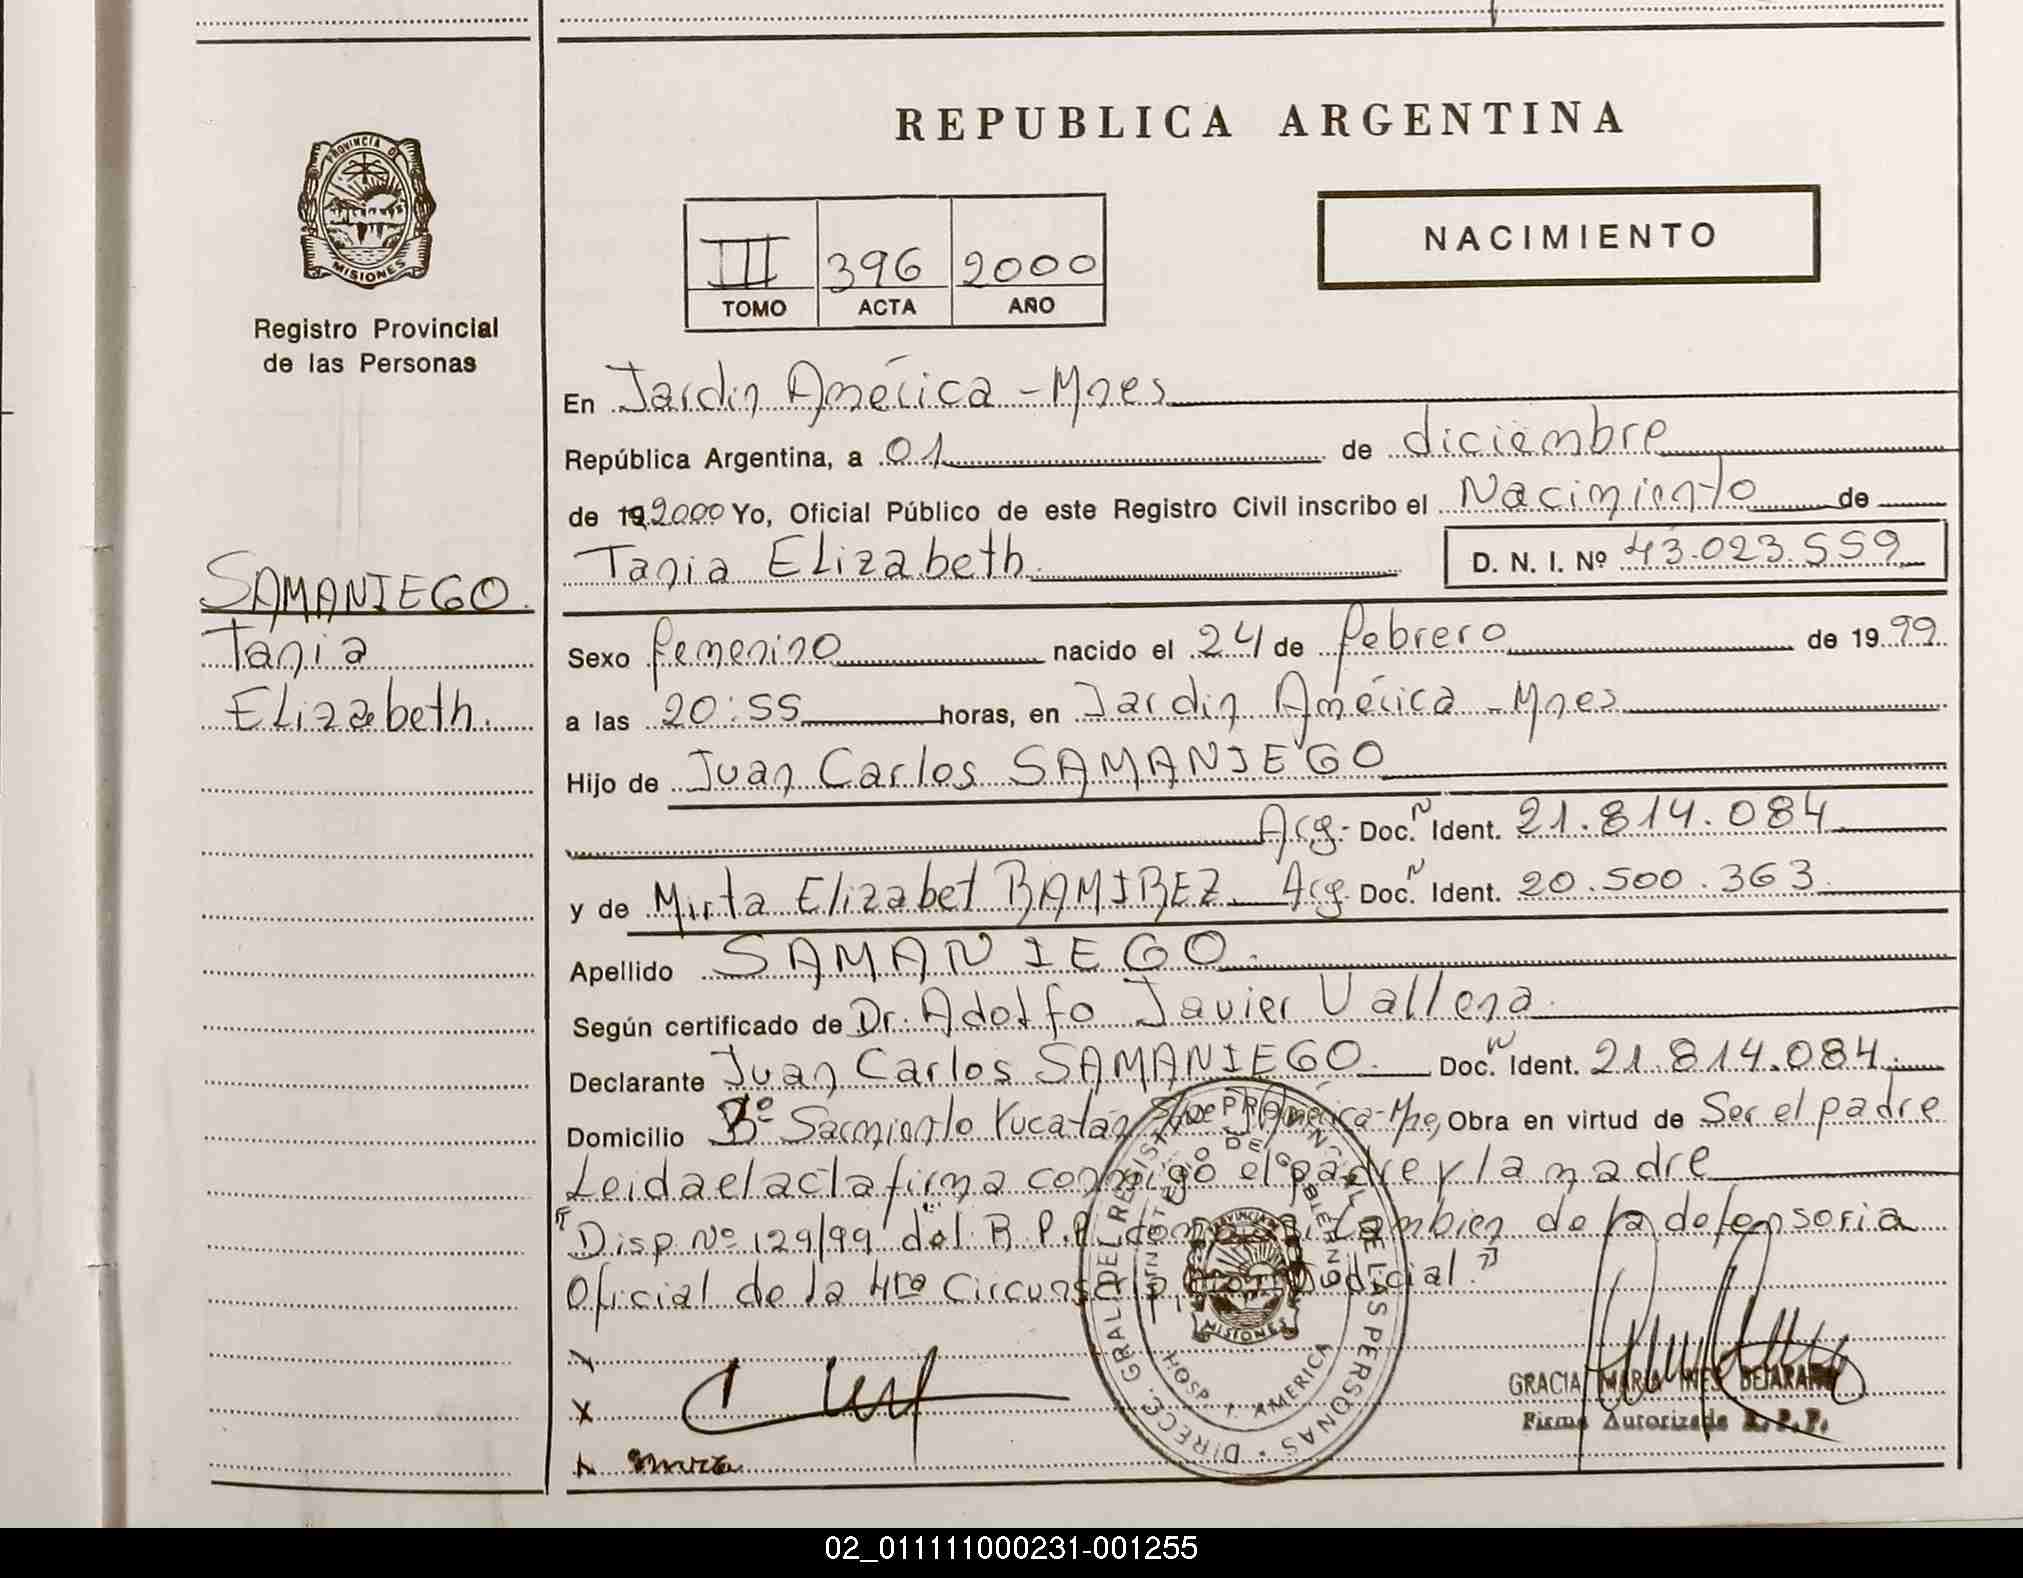 REPUBLICA ARGENTINA
PROVINCIA DE
MISIONES
Registro Provincial
de las Personas
III 396 2000
TOMO ACTA AÑO
NACIMIENTO
En Jardin América - Mnes
República Argentina, a 01 de diciembre
de 19 2000 Yo, Oficial Público de este Registro Civil inscribo el Nacimiento de
Tania Elizabeth D. N. I. Nº 43.023.559
SAMANIEGO.
Tania
Elizabeth.
Sexo femenino nacido el 24 de febrero de 1999
a las 20:55 horas, en Jardin América - Mnes
Hijo de Juan Carlos SAMANIEGO
Arg. Doc. N Ident. 21.814.084
y de Mirta Elizabet RAMIREZ Arg. Doc. N Ident. 20.500.363
Apellido SAMANIEGO.
Según certificado de Dr. Adolfo Javier Vallena.
Declarante Juan Carlos SAMANIEGO. Doc. N Ident. 21.814.084.
Domicilio Bº Sarmiento Yucatán América-Mne, Obra en virtud de Ser el padre
Leida el acta firma conmigo el padre y la madre
"Disp Nº 129/99 del R.P.P. como así tambien de la defensoria
Oficial de la 4ta Circunscripción Judicial."
x
DIRECC. GRAL DEL REGISTRO PROVINCIAL DE LAS PERSONAS
MINISTERIO DE GOBIERNO
PROVINCIA DE
MISIONES
HOSP J. AMERICA
GRACIA MARIA INES BEJARANO
Firma Autorizada R.P.P.
02_011111000231-001255